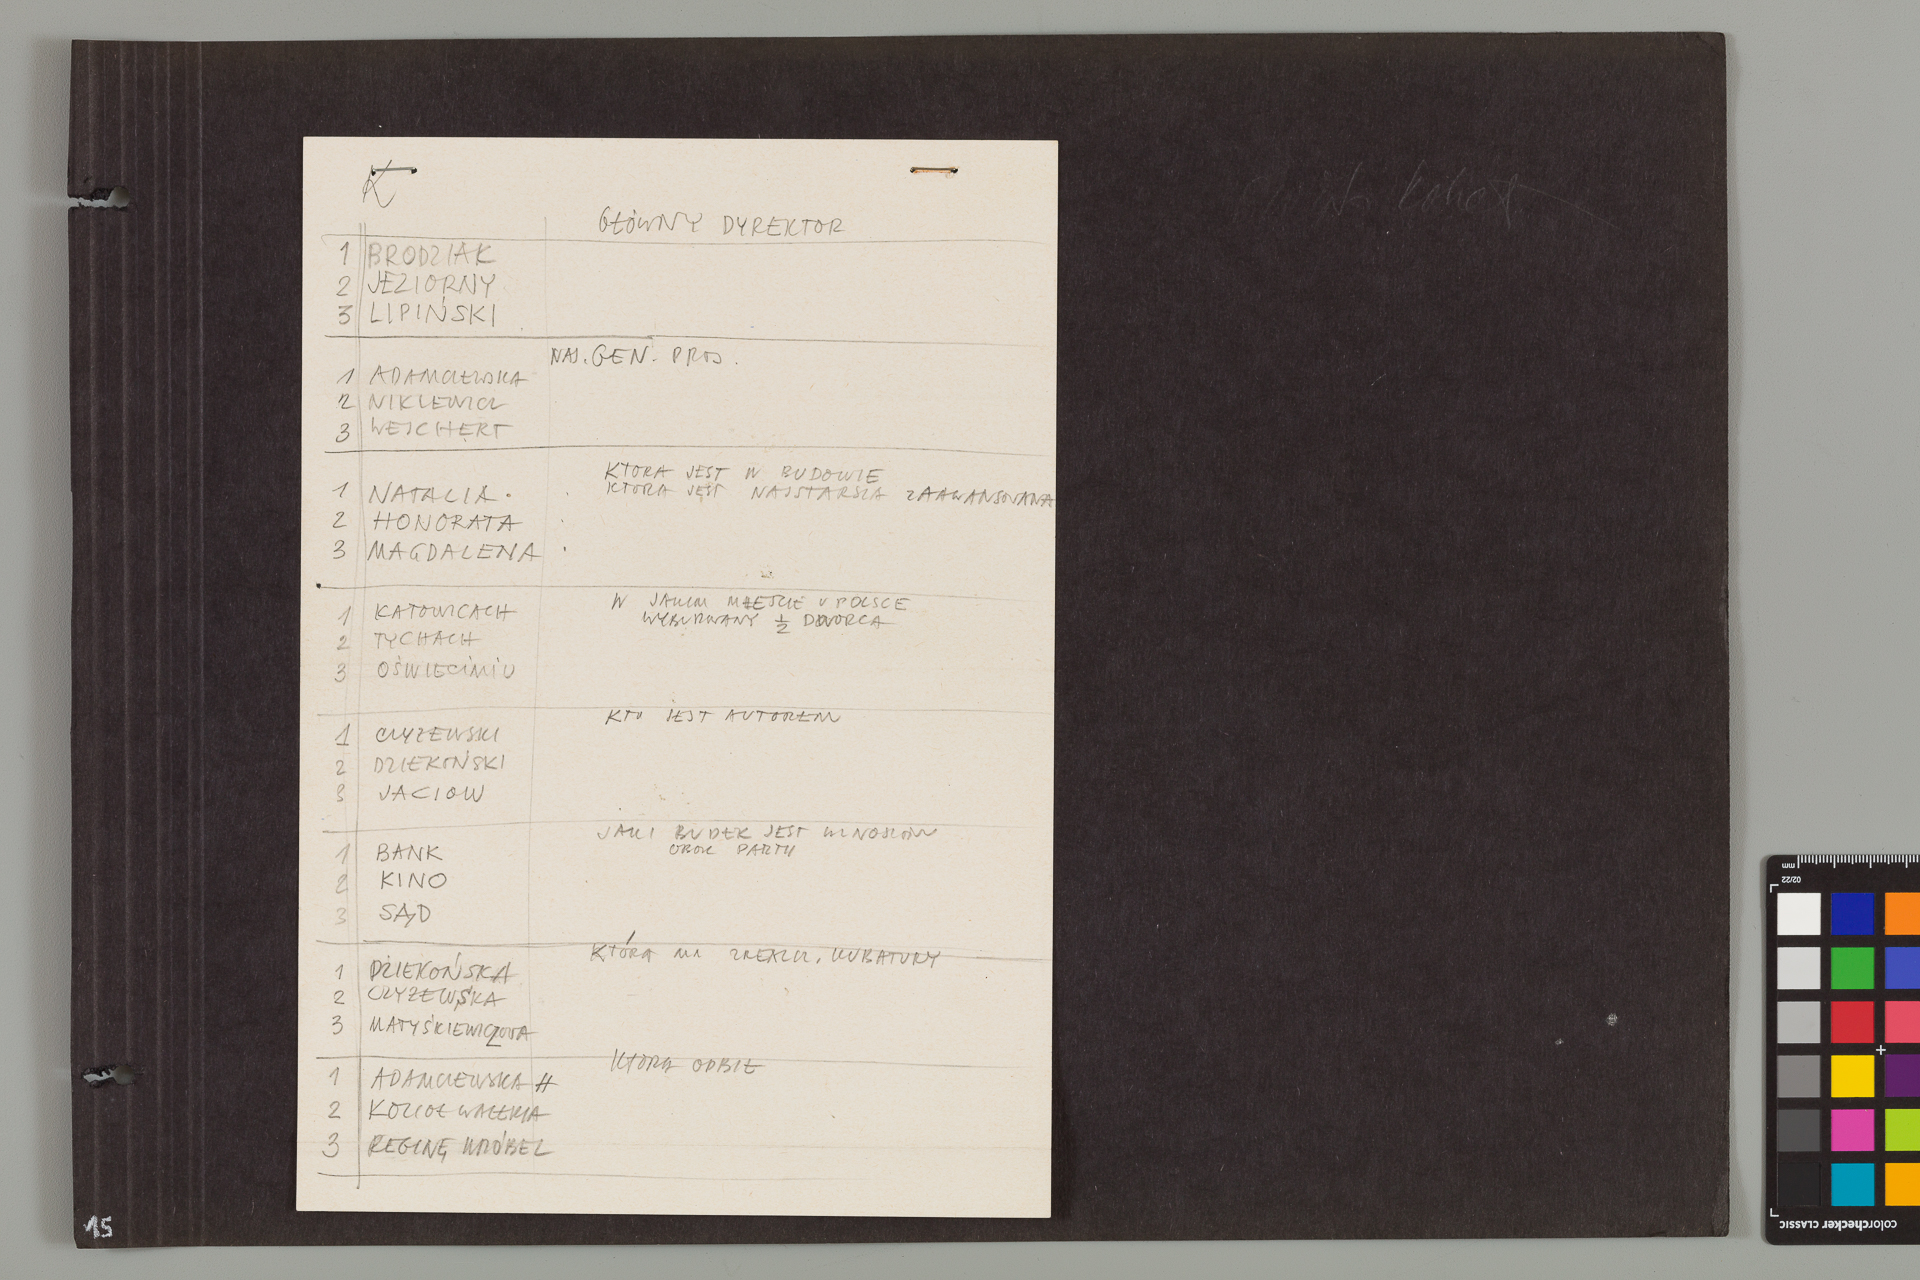 K
GŁÓWNY DYREKTOR
1 BRODZIAK
2 JEZIORNY
3 LIPIŃSKI
NAJ. GEN. PROJ.
1 ADAMCZEWSKA
2 NIKLEWICZ
3 WEJCHERT
KTORA JEST W BUDOWIE
KTORA JEST NAJSTARSZA ZAAWANSOWANA
1 NATALIA
2 HONORATA
3 MAGDALENA
W JAKIM MIEJSCIE W POLSCE
WYBUROWANY 1/2 DWORCA
1 KATOWICACH
2 TYCHACH
3 OŚWIECIMIU
KTO JEST AUTOREM
1 CZYZEWSKI
2 DZIEKOŃSKI
3 JACIOW
JAKI BUDEK JEST WZNOSZONY
OBOK PARTII
1 BANK
2 KINO
3 SĄD
KTÓRA MA ZREALIZ. KUBATURY
1 DZIEKOŃSKA
2 CZYZEWSKA
3 MATYŚKIEWICZOWA
KTORA ODBIŁ
1 ADAMCZEWSKA H
2 KOZIOŁ WALERIA
3 REGINĘ WRÓBEL
15
mm
02/22
colorchecker CLASSIC